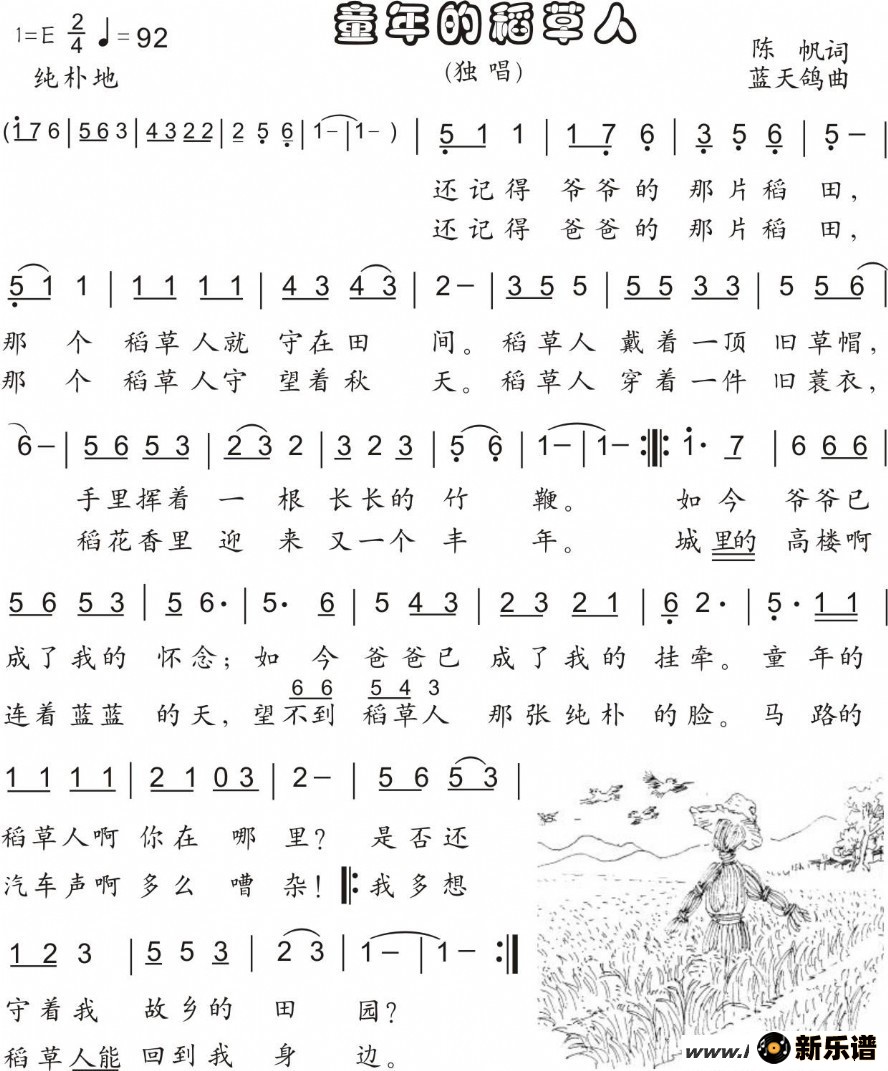 童年的稻草人
1=E 2/4 ♩=92
(独唱)
陈 帆词
纯朴地
蓝天鸽曲
(1 7 6 | 5 6 3 | 4 3 2 2 | 2 5 6 | 1 – | 1 – ) | 5 1 1 | 1 7 6 | 3 5 6 | 5 – |
还记得 爷爷的 那片稻 田，
还记得 爸爸的 那片稻 田，
5 1 1 | 1 1 1 1 | 4 3 4 3 | 2 – | 3 5 5 | 5 5 3 3 | 5 5 6 |
那 个 稻草人就 守在田 间。 稻草人 戴着一顶 旧草帽，
那 个 稻草人守 望着秋 天。 稻草人 穿着一件 旧蓑衣，
6 – | 5 6 5 3 | 2 3 2 | 3 2 3 | 5 6 | 1 – | 1 – :‖: 1· 7 | 6 6 6 |
手里挥着 一 根 长长的 竹 鞭。 如今 爷爷已
稻花香里 迎 来 又一个 丰 年。 城里的 高楼啊
5 6 5 3 | 5 6· | 5· 6 | 5 4 3 | 2 3 2 1 | 6 2· | 5· 1 1 |
成了我的 怀念；如 今 爸爸已 成了我的 挂牵。童 年的
6 6 5 4 3
连着蓝蓝 的天，望不到 稻草人 那张纯朴 的脸。马 路的
1 1 1 1 | 2 1 0 3 | 2 – | 5 6 5 3 |
稻草人啊 你在 哪 里？ 是否还
汽车声啊 多么 嘈 杂！ ‖: 我多想
1 2 3 | 5 5 3 | 2 3 | 1 – | 1 – :‖
守着我 故乡的 田 园？
稻草人能 回到我 身 边。
www.
新乐谱